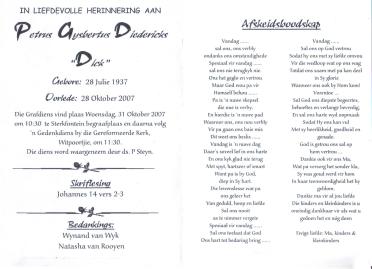 IN LIEFDEVOLLE HERINNERING AAN
Petrus Gysbertus Diedericks
"Dick"
Gebore: 28 Julie 1937
Oorlede: 28 Oktober 2007
Die Grafdiens vind plaas Woensdag, 31 Oktober 2007
om 10:30 te Sterkfontein begraafplaas en daarna volg
'n Gedenkdiens by die Gereformeerde Kerk,
Witpoortjie, om 11:30.
Die diens word waargeneem deur ds. P Steyn.
Skriflesing
Johannes 14 vers 2-3
Bedankings:
Wynand van Wyk
Natasha van Rooyen
Afskeidsboodskap
Vandag ......
sal ons, ons verbly
ondanks ons omstandighede
Spesiaal vir vandag ......
sal ons nie terugkyk nie
Ons het gagte en eelte
Maar God self
Homself behou ......
Pa is 'n nuwe skepsel
die oue is verby.
En hierdie is 'n nuwe pad
Waarmee ons, nou ons verbly
Vir pa gaan ons baie mis
Dit weet ons beslis ......
Vandag is 'n nuwe dag
Daar's soveel lief in ons harte
En ons kyk glad nie terug
Met spyt, hartseer of smart
Want pa is by God,
diep in Sy hart.
Die lewensloop wat pa
ons geleer het
Van geduld, hoop en liefde
Sal ons nooit
as te nimmer vergete
Spesiaal vir vandag ......
Sal ons iesland dat dit
Ons hart tot bedaring bring ......
Vandag ......
Sal ons op God vertrou
Sodat hy ons met sy liefde omvou.
Vir die vredloop wat op ons wag
Totdat ons saam met pa kan deel
in Sy glorie
Waarvoor ons ook by Hom kom!
Vandag ......
Sal God ons diepste begeertes,
behoeftes en verlange bevredig
En sal ons harte wyd oopmaak
Sodat Hy ons kan vul
Met sy heerlikheid, goedheid en
genade.
God is getrou ons sal op
hom vertrou ...
Dankie ook vir ma Mo,
Wat pa versorg het sonder kla,
Sy was goud werd vir hom
In haar teenwoordigheid het hy
geblom.
Dankie ma vir al jou liefde
Die kinders en kleinkinders is u
ewiglik dankbaar vir als wat u
gedoen het en nog doen
Ewige liefde: Ma, kinders &
kleinkinders